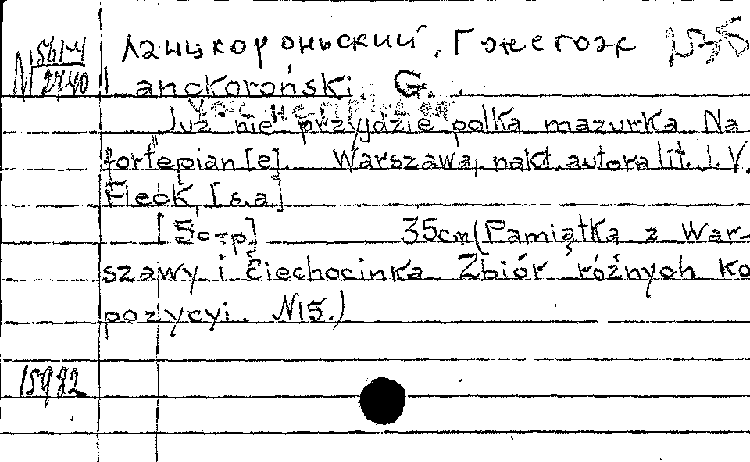 M 561-4
2440
Ланцкороньский, Гжегож
Lanckoroński, G.
Już nie przyjdzie polka mazurka Na
fortepian[e]. Warszawa, nakł. autora lit. J. V.
Fleck, [s.a]
[5 стр] 35cm (Pamiątka z War-
szawy i Ciechocinka Zbiór różnych ko
pozycyi. N15.)
15982